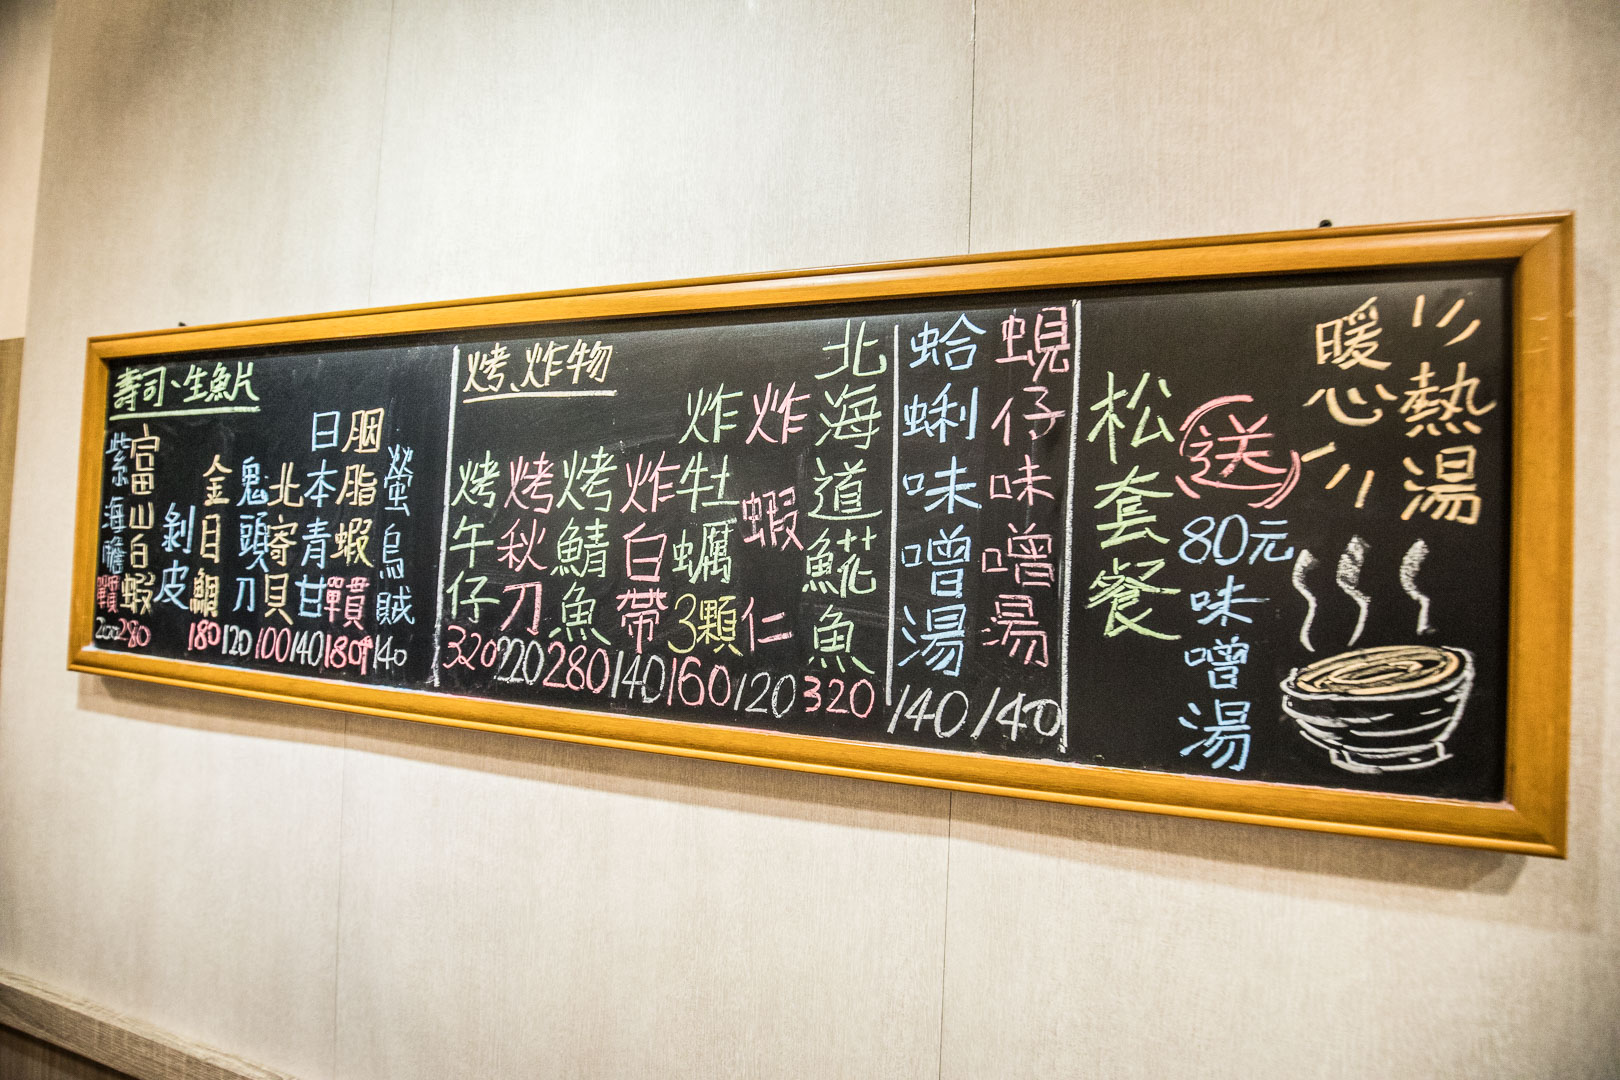 熱湯
暖心
送
80元味噌湯
松套餐
蜆仔味噌湯
140
蛤蜊味噌湯
140
烤、炸物
北海道𩸽魚
320
炸蝦仁
120
炸牡蠣3顆
160
炸白帶
140
烤鯖魚
280
烤秋刀
220
烤午仔
320
壽司、生魚片
螢烏賊
140
胭脂蝦單貫
180
日本青甘
140
北寄貝
100
鬼頭刀
120
金目鯛
180
剝皮
富山白蝦
280
紫海膽單貫
200